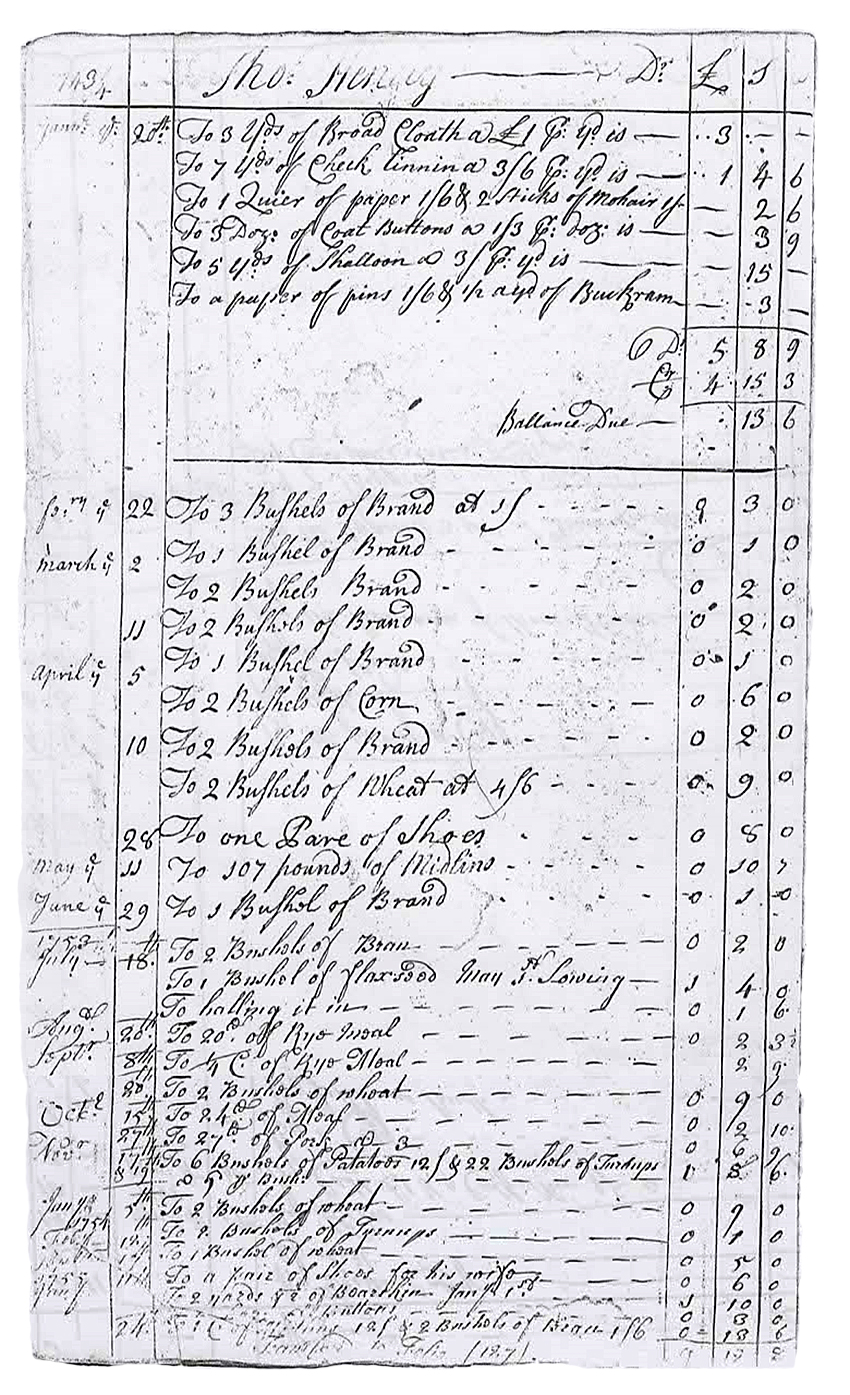 Tho: Henry — Dr £ s
20th To 3 Yds of Broad Cloath a £1 p: yd is — 3 - -
To 7 yds of Check linnin a 3/6 p: yd is — 1 4 6
To 1 Quier of paper 1/6 & 2 Sticks of Mohair 1/- — 2 6
To 3 Doz: of Coat Buttons a 1/3 p: doz: is — 3 9
To 5 yds of Shalloon a 3/ p: yd is — 15 —
To a paper of pins 1/6 & 1/2 a yd of Buckram — 3 —
Dr 5 8 9
Cr 4 15 3
Ballance Due — 13 6
22 To 3 Bushels of Brand at 1/ - - - - - 0 3 0
March ye 2 To 1 Bushel of Brand - - - - - 0 1 0
To 2 Bushels Brand - - - - - 0 2 0
11 To 2 Bushels of Brand - - - - - 0 2 0
April ye 5 To 1 Bushel of Brand - - - - - 0 1 0
To 2 Bushels of Corn - - - - - 0 6 0
10 To 2 Bushels of Brand - - - - - 0 2 0
To 2 Bushels of Wheat at 4/6 - - - - 0 9 0
28 To one Pare of Shoes - - - 0 8 0
May ye 11 To 107 pounds of Midlins - - - - 0 10 7
June ye 29 To 1 Bushel of Brand - - - - 0 1 0
1753
July 18th To 2 Bushels of Bran - - - - 0 2 0
To 1 Bushel of flaxseed May Sowing — 1 4 0
To halling it in — 1 6
Augt 20th To 20 of Rye meal - - - - 0 2
Septr 8th To C of Rye Meal - - - - 2 9
20th To 2 Bushels of wheat - - - - 0 9 0
Octr 15th To 24 of Meal - - - - 0 2 10
Novr 27th To 27 lb of Pork a 3 0 6 9
17th To 6 Bushels of Patatoes 12/ & 22 Bushels of Turnups
& 19 a 9 ye Bush: 1 8 6
Jany 5th To 2 Bushels of wheat - - - - 0 9 0
1754 To 2 Bushels of Turnups - - - - 0
To 1 Bushel of wheat - - - - 0 5 0
1755 To a pair of Shoes for his wife - - 0 6 0
Jany To 2 yards of Bearskin Jany 1st 1 10 0
Buttons 0 3 0
24 12/ & 2 Bushels of Bran 1/6 0 13 6
to Folio (127)